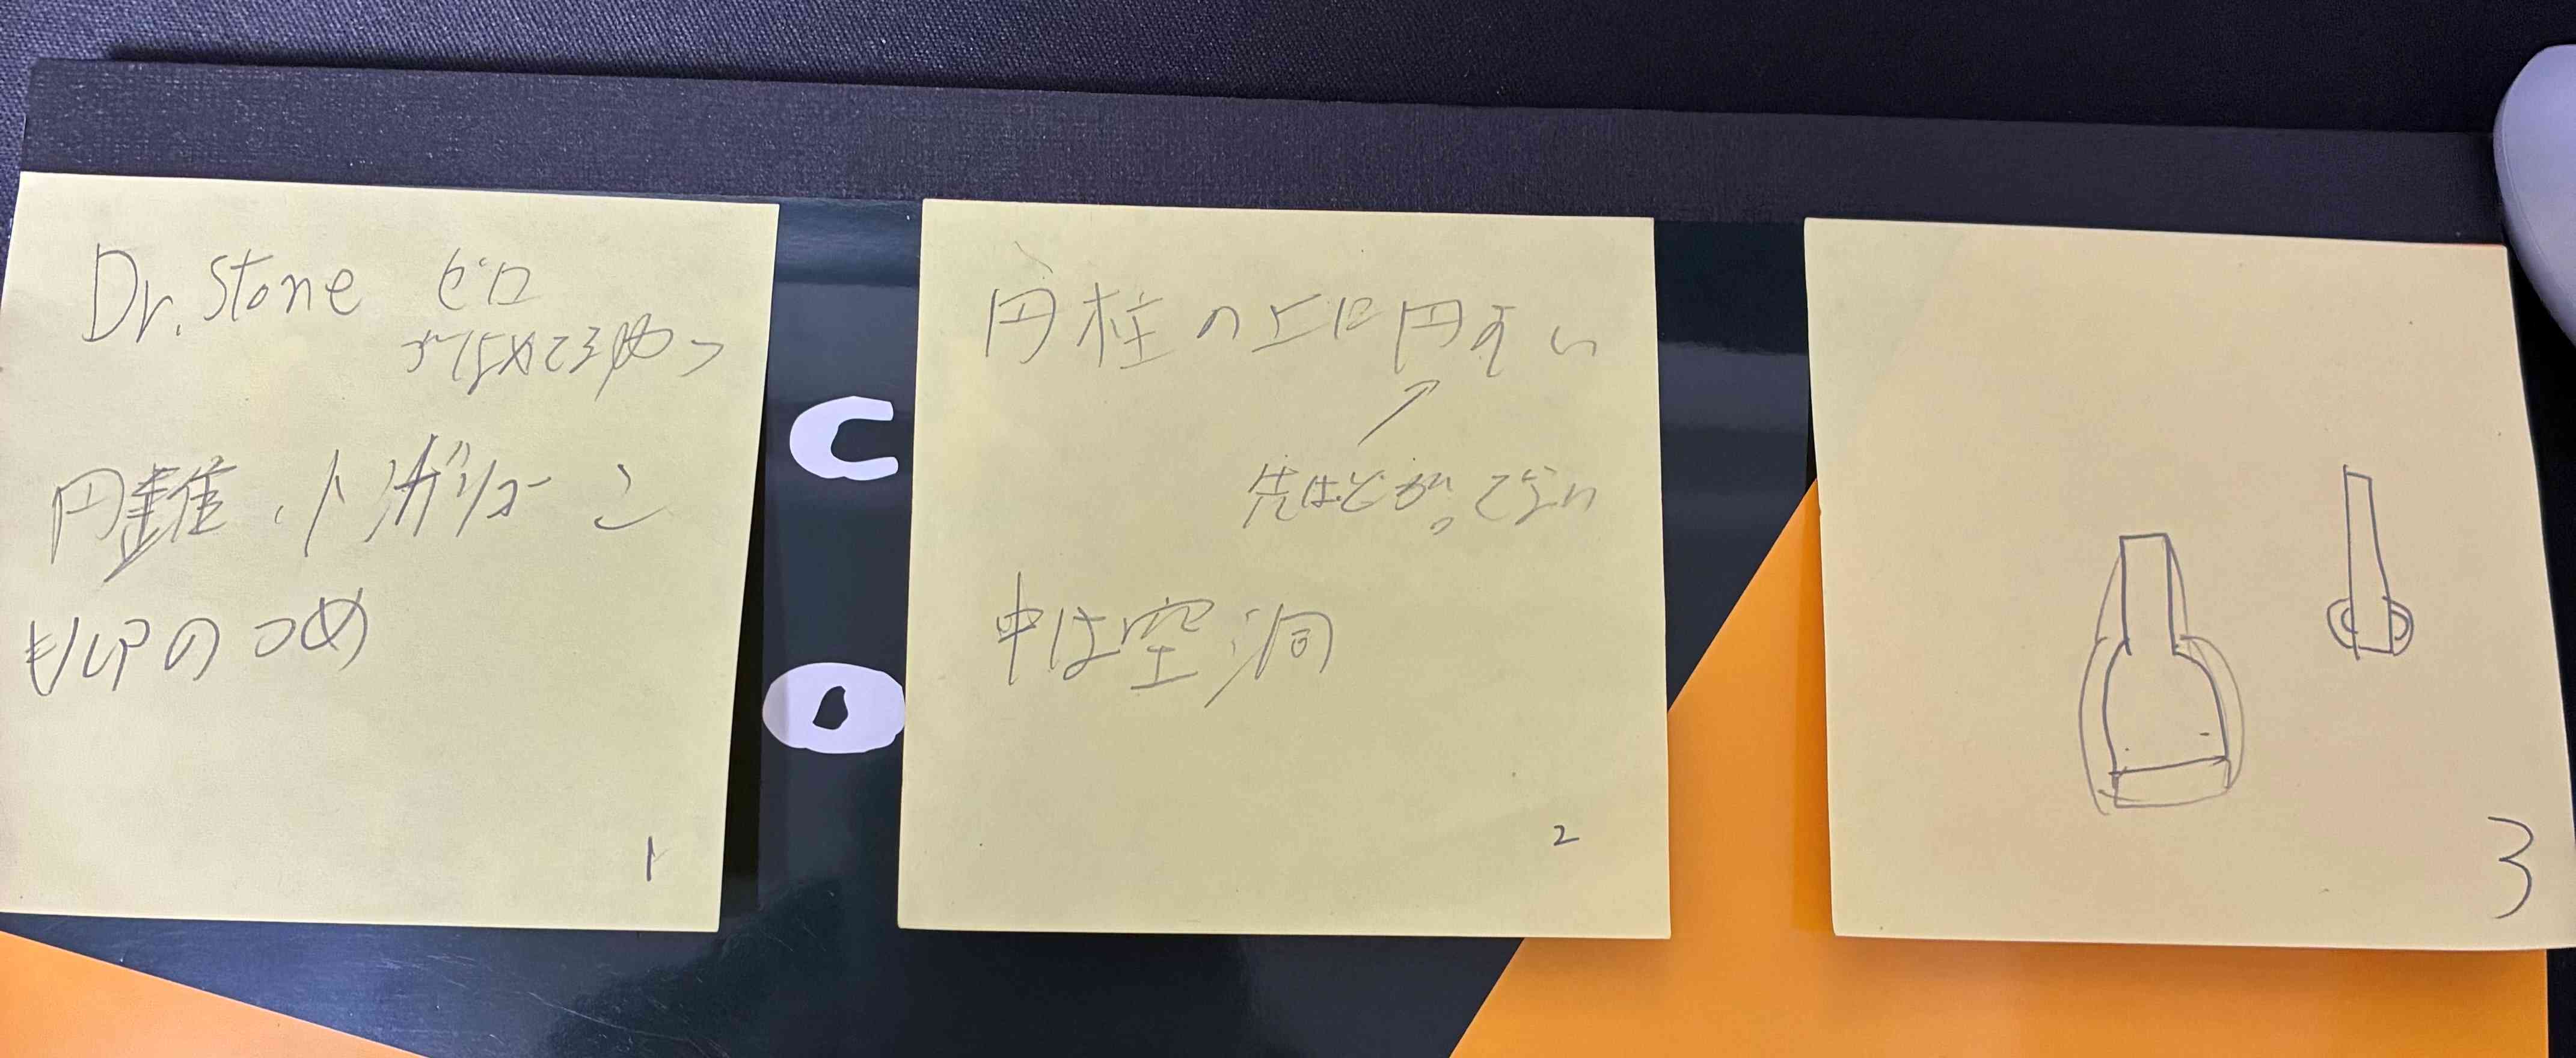 Dr. Stone ゼロ
がはめてるやつ
円錐、トンガリコーン
モルPのつめ
1
C
O
円柱の上に円すい
↗
先はとがってない
中は空洞
2
3